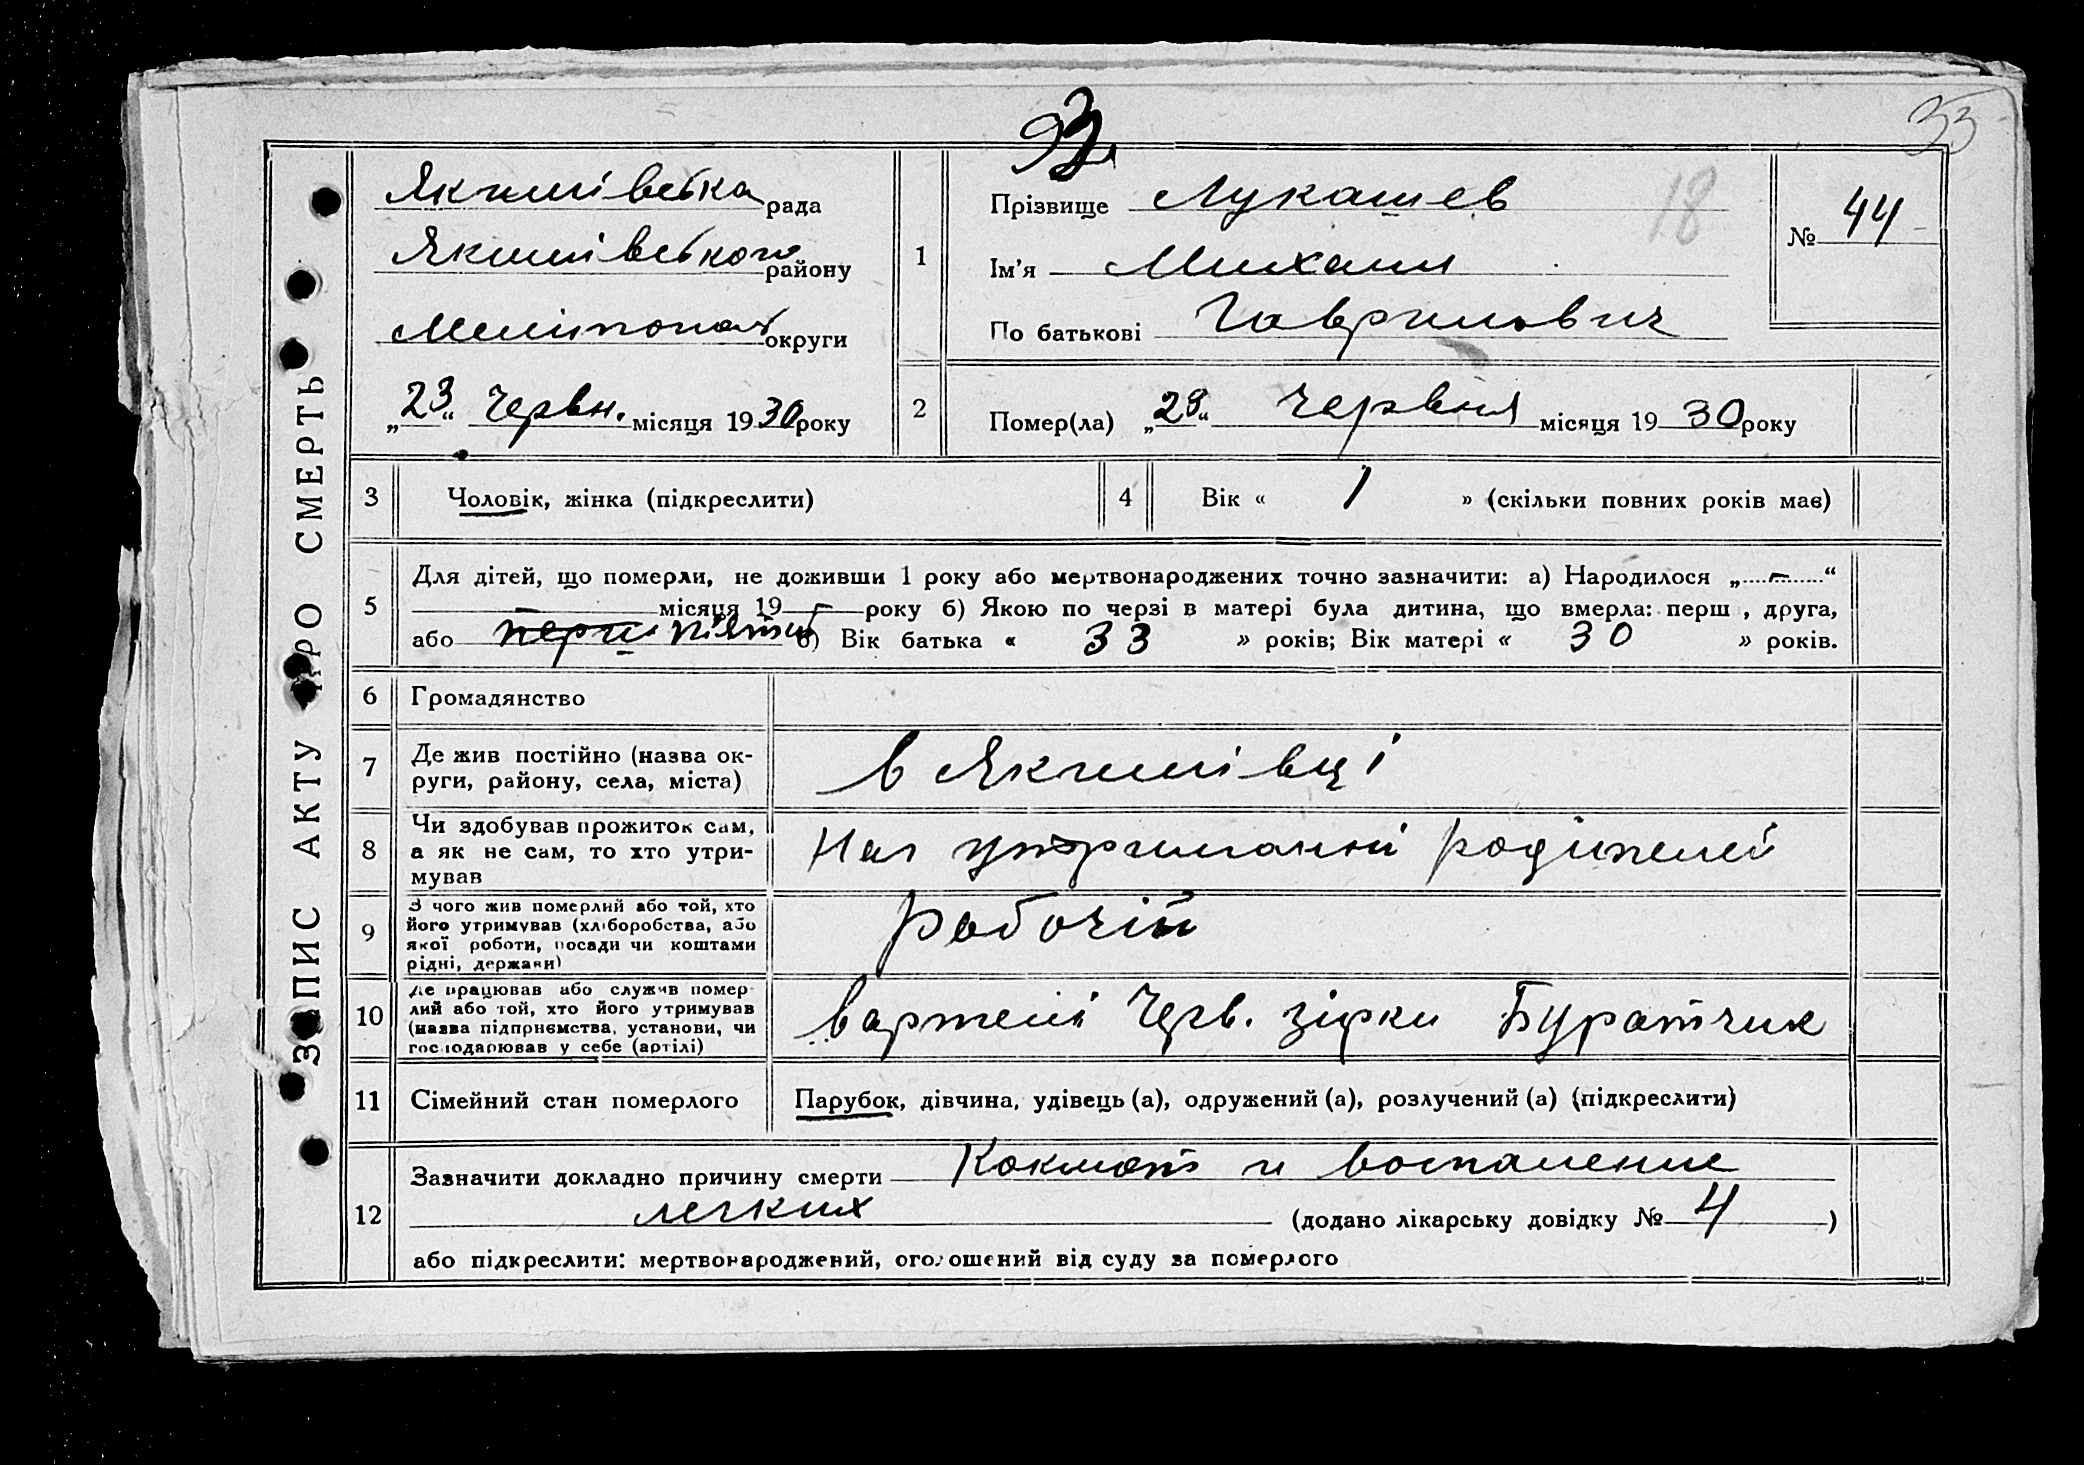 33
18
ЗАПИС АКТУ ПРО СМЕРТЬ
Якимівська рада
Якимівського району
Мелітополь округи
„23“ Червн. місяця 1930 року
1
Прізвище Лукашев
Ім'я Михаил
По батькові Гаврилович
№ 44
2
Помер(ла) „23“ Червня місяця 1930 року
3
Чоловік, жінка (підкреслити)
4
Вік « 1 » (скільки повних років має)
5
Для дітей, що померли, не доживши 1 року або мертвонароджених точно зазначити: а) Народилося „ – “
– місяця 19 – року б) Якою по черзі в матері була дитина, що вмерла: перш , друга,
або перш. пятий в) Вік батька « 33 » років; Вік матері « 30 » років.
6
Громадянство
7
Де жив постійно (назва ок-
руги, району, села, міста)
в Якимівці
8
Чи здобував прожиток сам,
а як не сам, то хто утри-
мував
На утриманні родителей
9
З чого жив померлий або той, хто
його утримував (хліборобства, або
якої роботи, посади чи коштами
рідні, держави)
Рабочій
10
Де працював або служив помер-
лий або той, хто його утримував
(назва підприємства, установи, чи
господарював у себе (артілі)
вартелі Черв. зірки Буратчик
11
Сімейний стан померлого
Парубок, дівчина, удівець (а), одружений (а), розлучений (а) (підкреслити)
12
Зазначити докладно причину смерти Коклюш и воспаление
легких (додано лікарську довідку № 4 )
або підкреслити: мертвонароджений, оголошений від суду за померлого